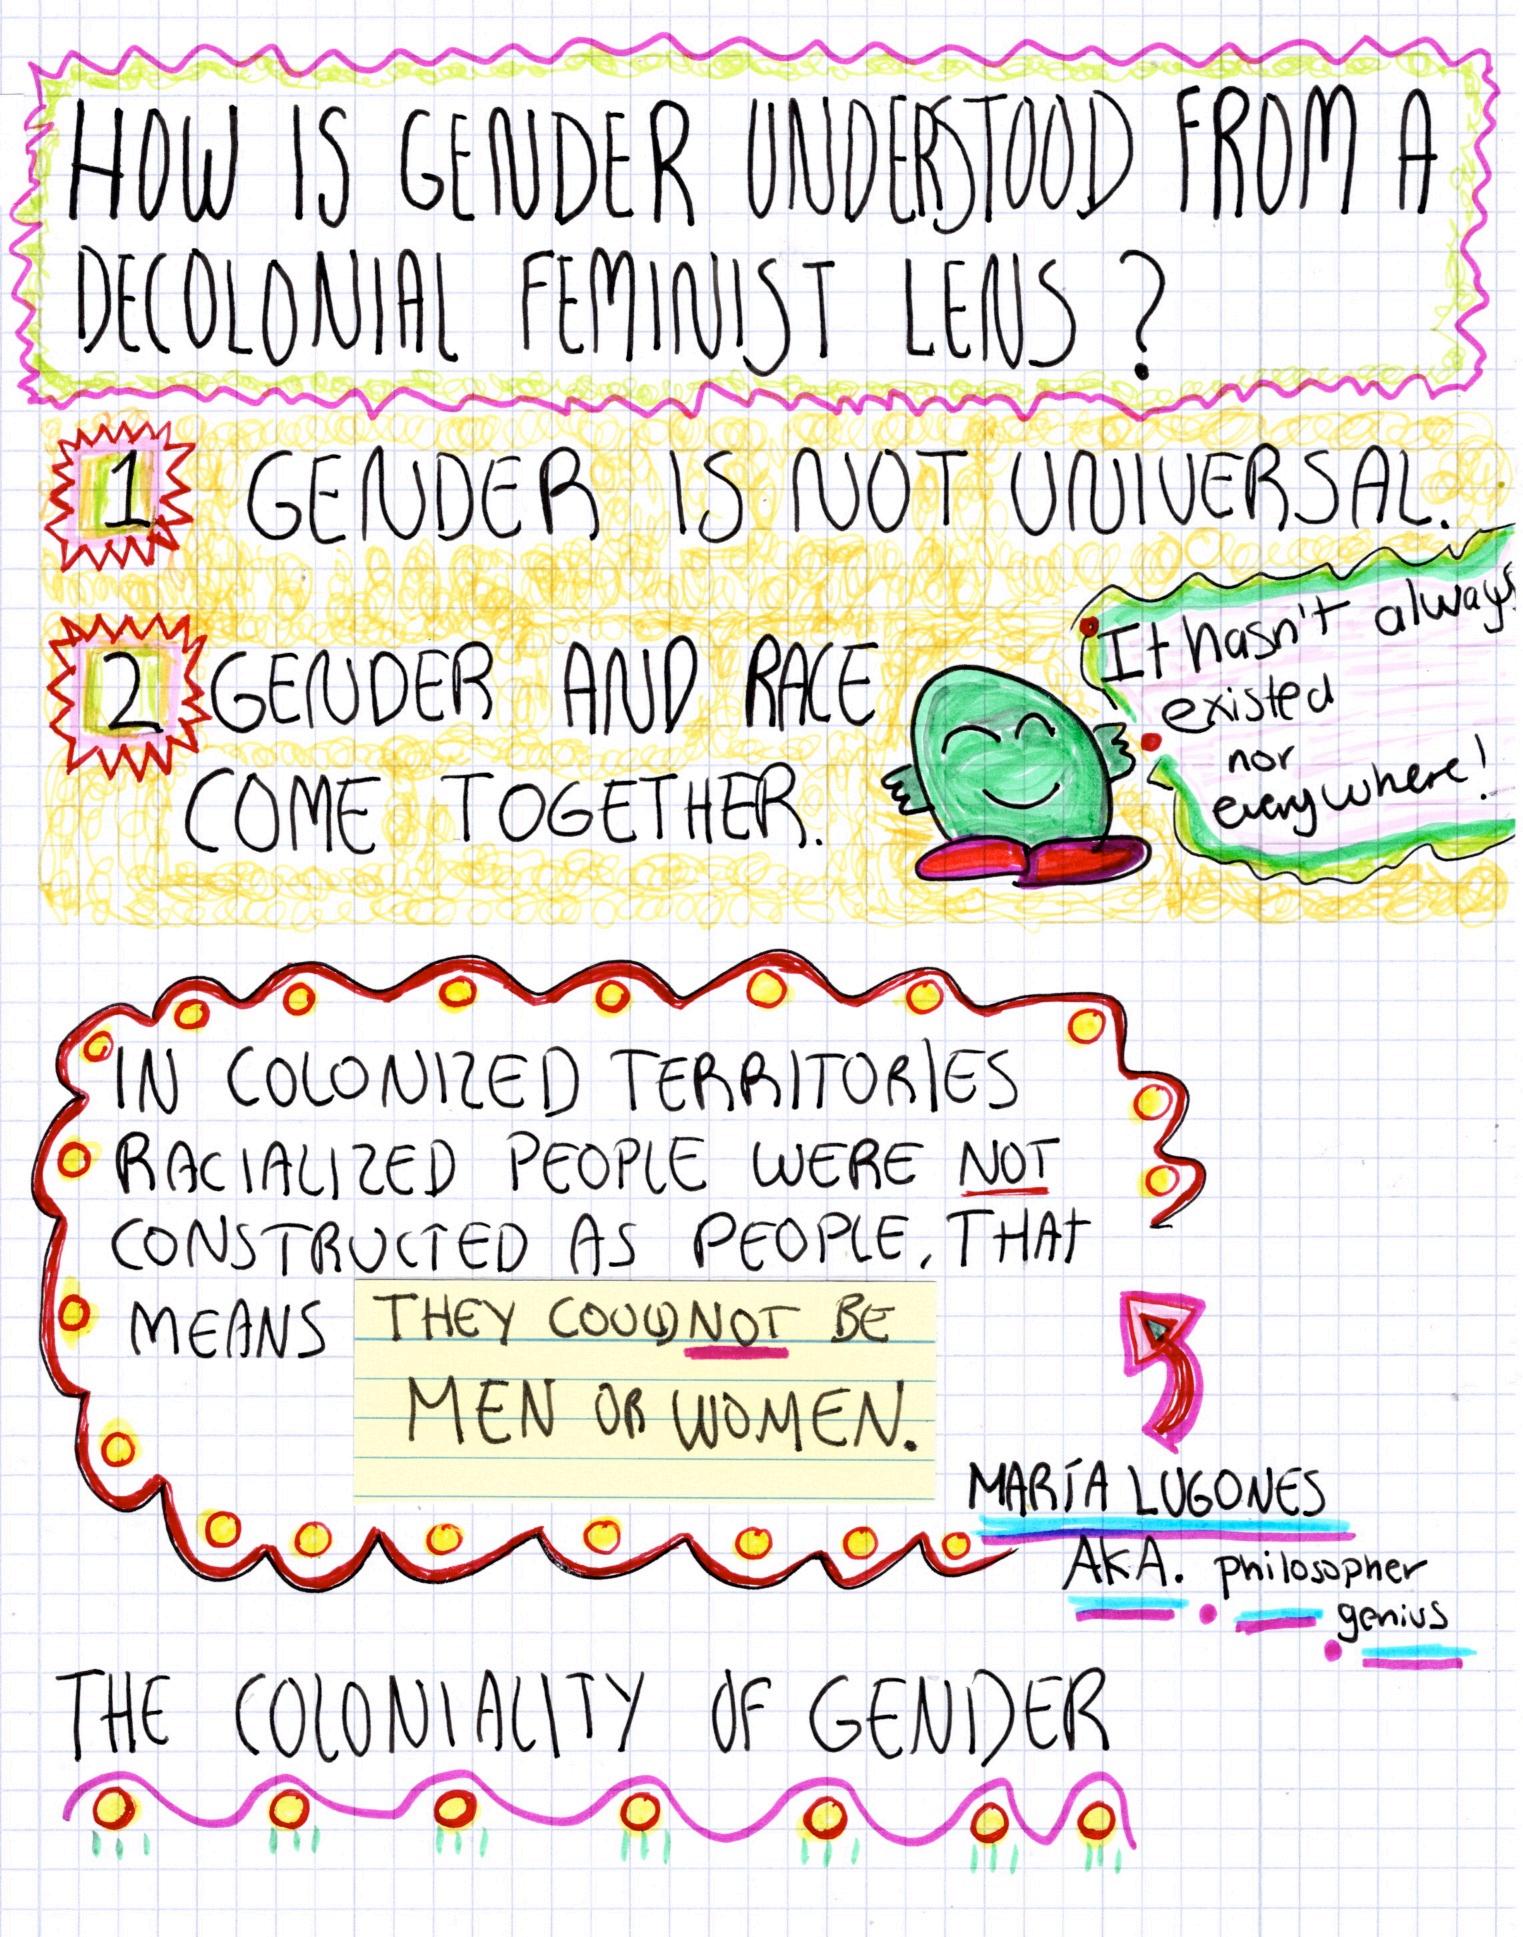 HOW IS GENDER UNDERSTOOD FROM A
DECOLONIAL FEMINIST LENS?
1 GENDER IS NOT UNIVERSAL.
2 GENDER AND RACE
COME TOGETHER.
It hasn't always
existed
nor
everywhere!
IN COLONIZED TERRITORIES
RACIALIZED PEOPLE WERE NOT
CONSTRUCTED AS PEOPLE, THAT
MEANS THEY COULD NOT BE
MEN OR WOMEN.
MARÍA LUGONES
AKA. philosopher
genius
THE COLONIALITY OF GENDER